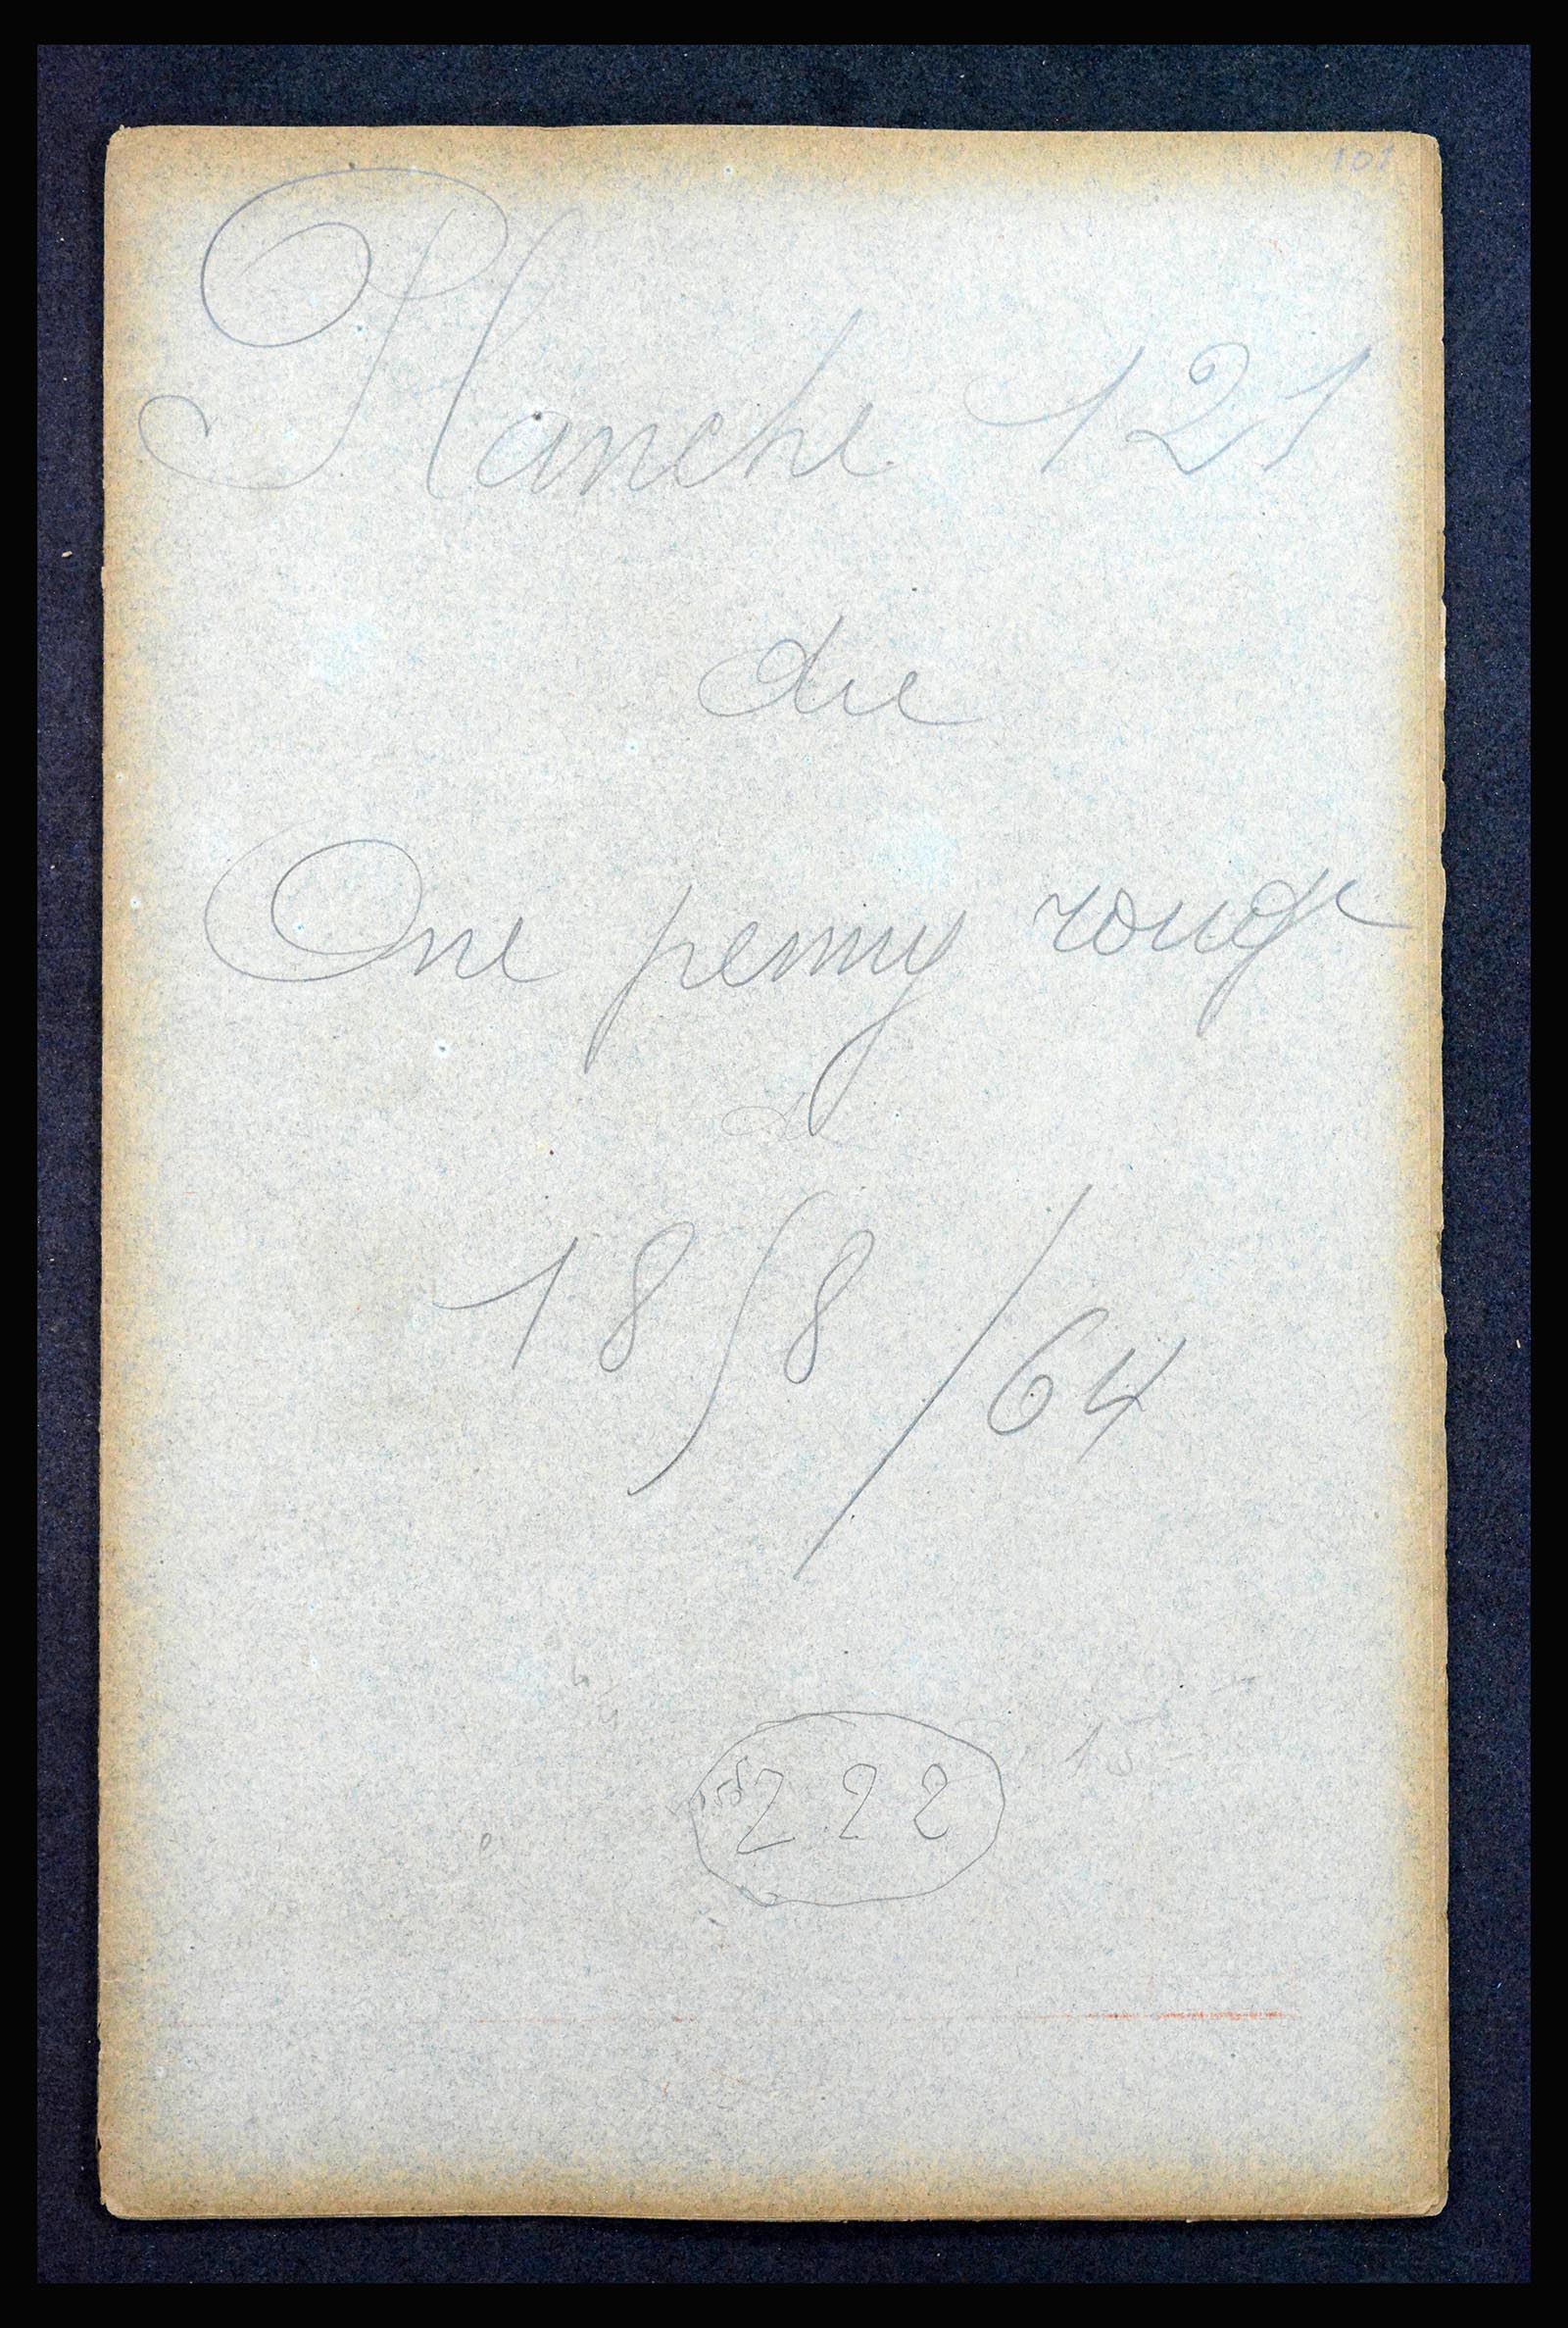 101
Planche 121
du
One penny rouge
d
1858/64
15
222